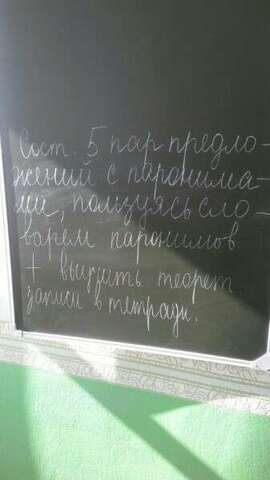 Сост. 5 пар предло-
жений с паронима-
ми, пользуясь сло-
варем паронимов
+ выучить теорет.
записи в тетради.